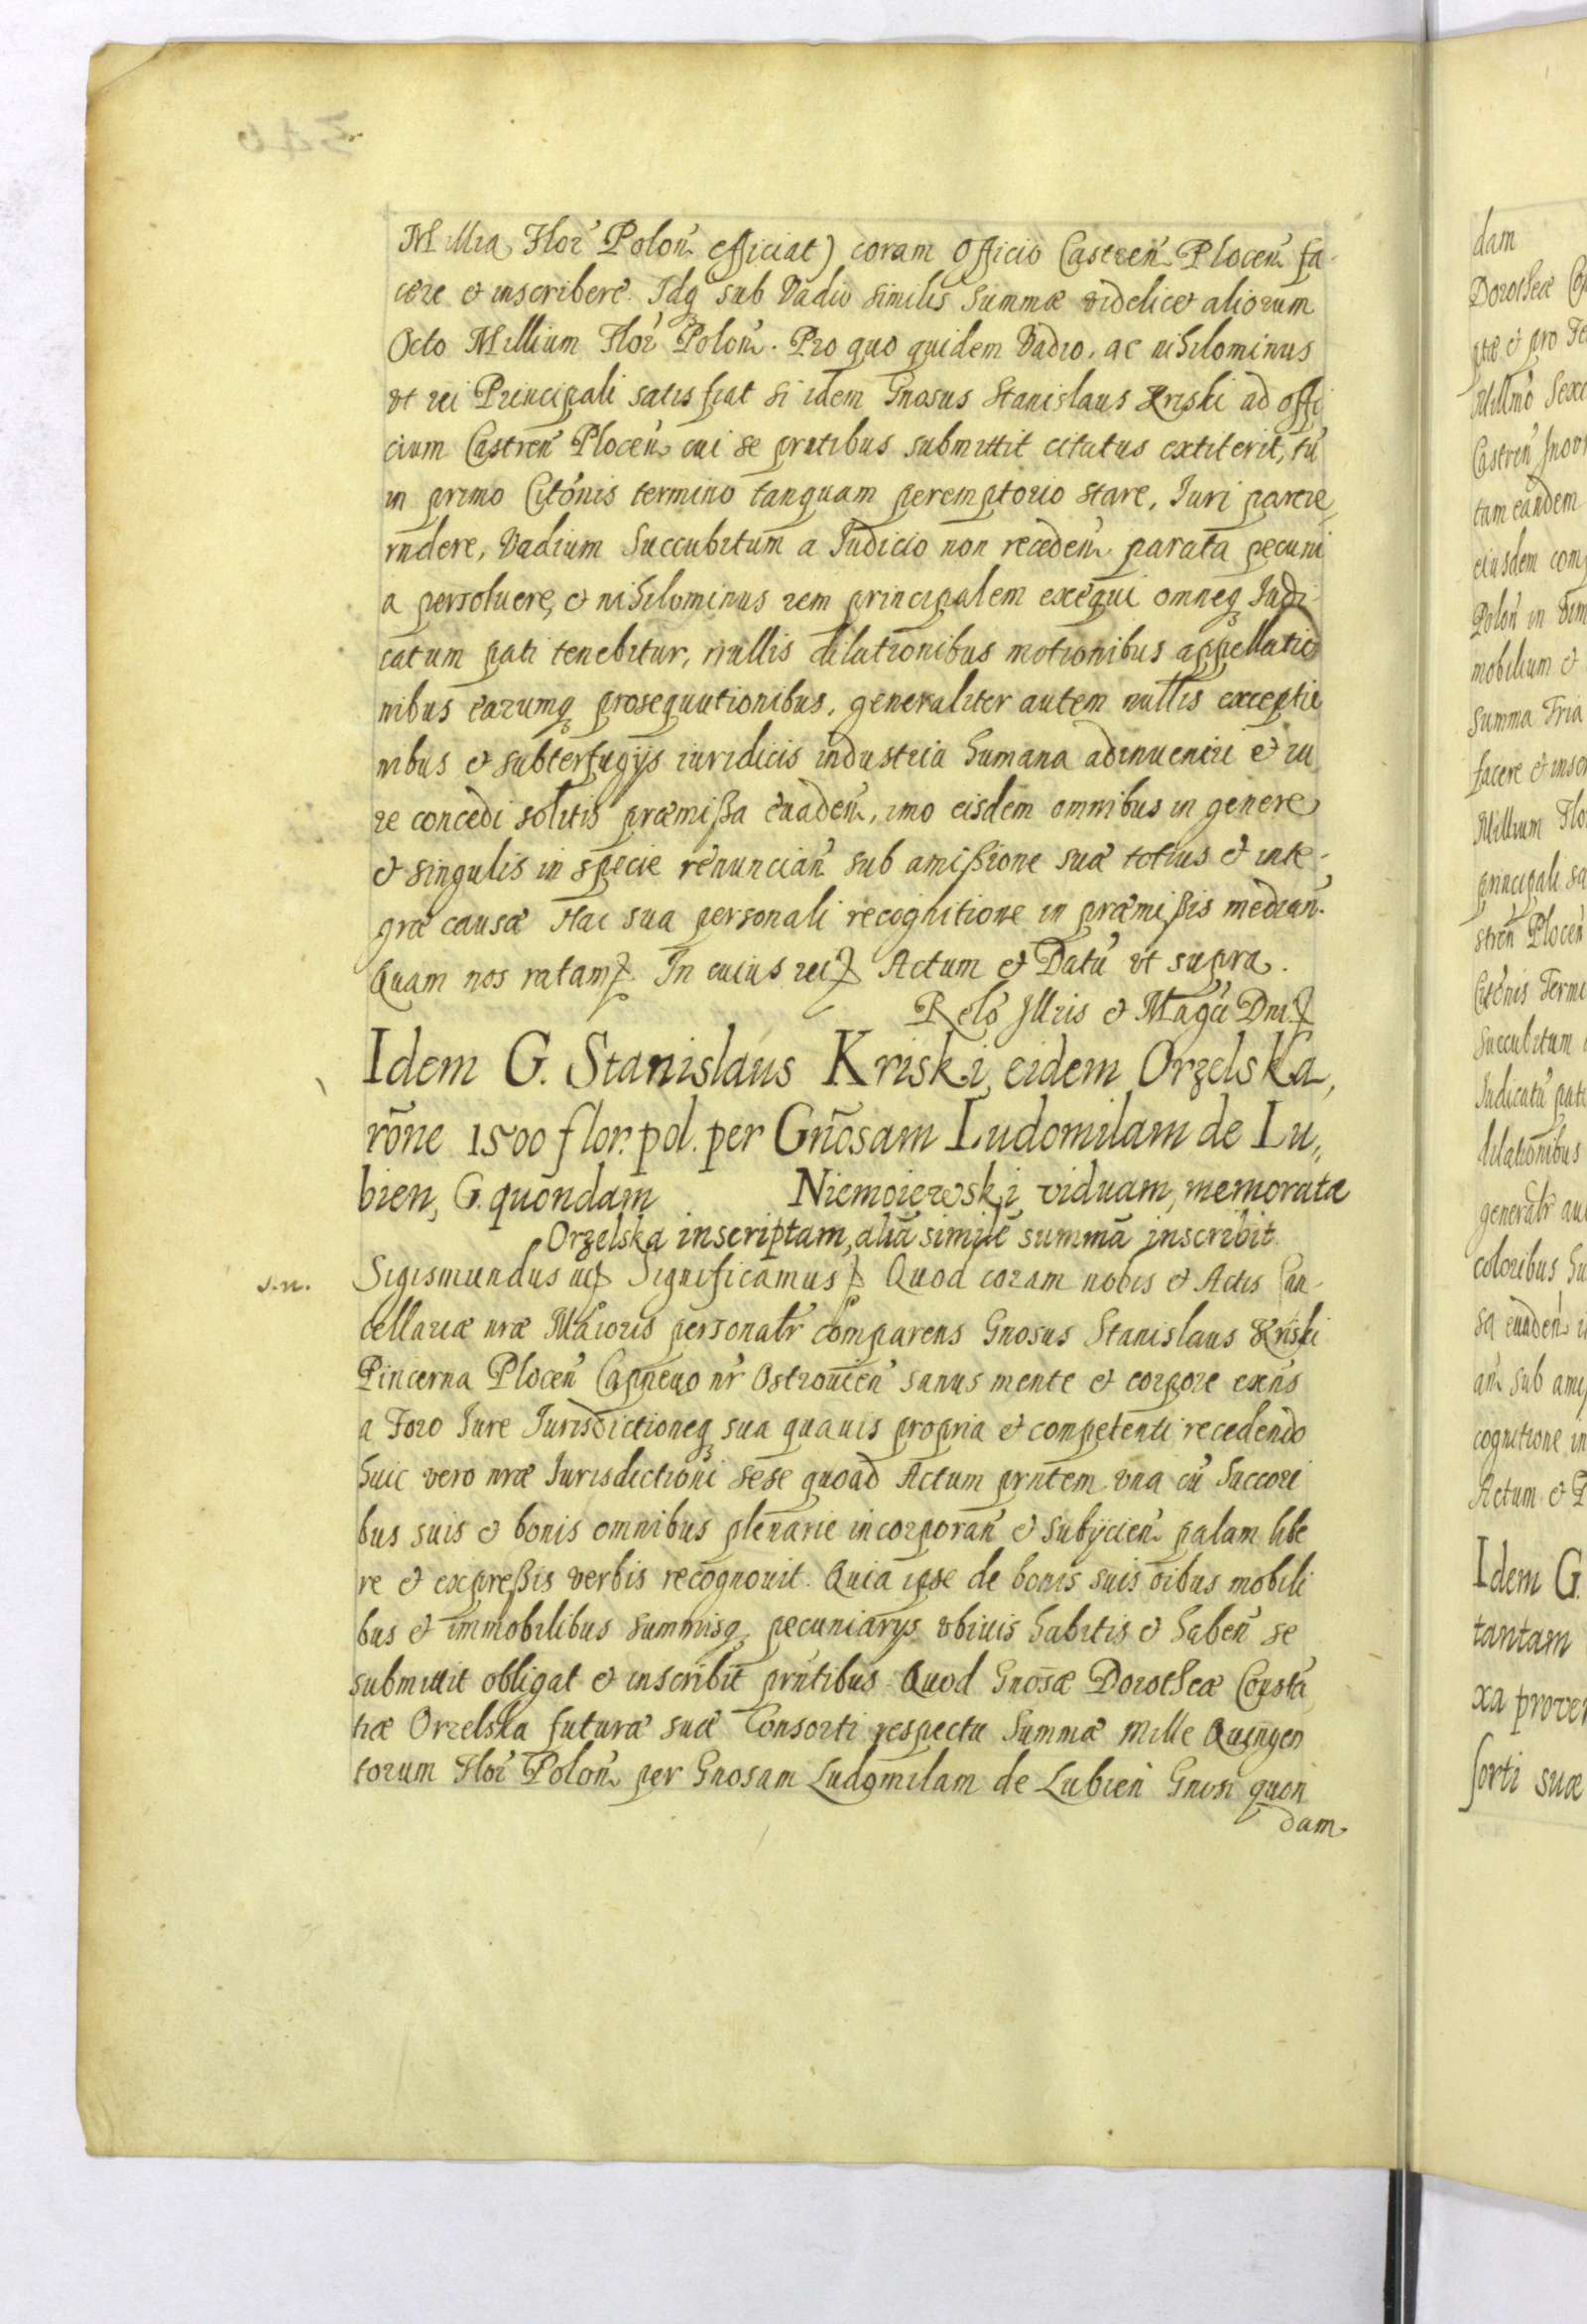 Millia Flor̃ Polon̄ efficiat) coram Officio Castren̄ Plocen̄ fa-
cere et inscribere. Idq̢ sub Vadio similis Summæ videlicet aliorum
Octo Millium Flor̃ Polon̄. Pro quo quidem Vadio, ac nihilominus
vt rei Principali satis fiat si idem Gnosus Stanislaus Kriski ad offi
cium Castren̄ Plocen̄ cui se prntibus submittit citatus extiterit, tū
in primo Citōnis termino tanquam peremptorio stare, Iuri parere,
rndere, Vadium Succubitum a Iudicio non receden̄ parata pecuni
a persoluere, et nihilominus rem principalem exequi omneq̢ Iudi-
catum pati tenebitur, nullis dilationibus motionibus appellatio
nibus earumq̢ prosequutionibus, generaliter autem nullis exceptio
nibus et subterfugijs iuridicis industria humana adinueniri et iu
re concedi solitis præmißa euaden̄, imo eisdem omnibus in genere
et singulis in specie renuncian̄ sub amißione suæ totius et inte-
græ causæ Hac sua personali recognitione in præmißis median̄.
Quam nos ratam In cuius rei Actum et Datū vt supra.
Relō Illris et Magci Dni
Idem G. Stanislaus Kriski eidem Orzelska,
rōne 1500 flor. pol. per Gnōsam Ludomilam de Lu„
bien, G. quondam Niemoiewski viduam, memoratæ
Orzelska inscriptam, aliā similē summā inscribit
s.n. Sigismundus Significamus Quod coram nobis et Actis Can-
cellariæ nræ Maioris personalr̃ comparens Gnosus Stanislaus Kriski
Pincerna Plocen̄ Capneus nr̃ Ostrouien̄ sanus mente et corpore exñs
a Foro Iure Iurisdictioneq̢ sua quauis propria et competenti recedendo
huic vero nræ Iurisdictioni sese quoad Actum prntem vna cū Succori
bus suis et bonis omnibus plenarie incorporan̄ et subijcien̄ palam libe
re et expreßis verbis recognouit. Quia ipse de bonis suis oībus mobili
bus et immobilibus summisq̢ pecuniarijs vbiuis habitis et haben̄ se
submittit obligat et inscribit prntibus. Quod Gnosæ Dorotheæ Constā
tiæ Orzelska futuræ suæ Consorti respectu Summæ Mille Quingen
torum Flor̃ Polon̄ per Gnosam Ludomilam de Lubien Gnosi quon
dam